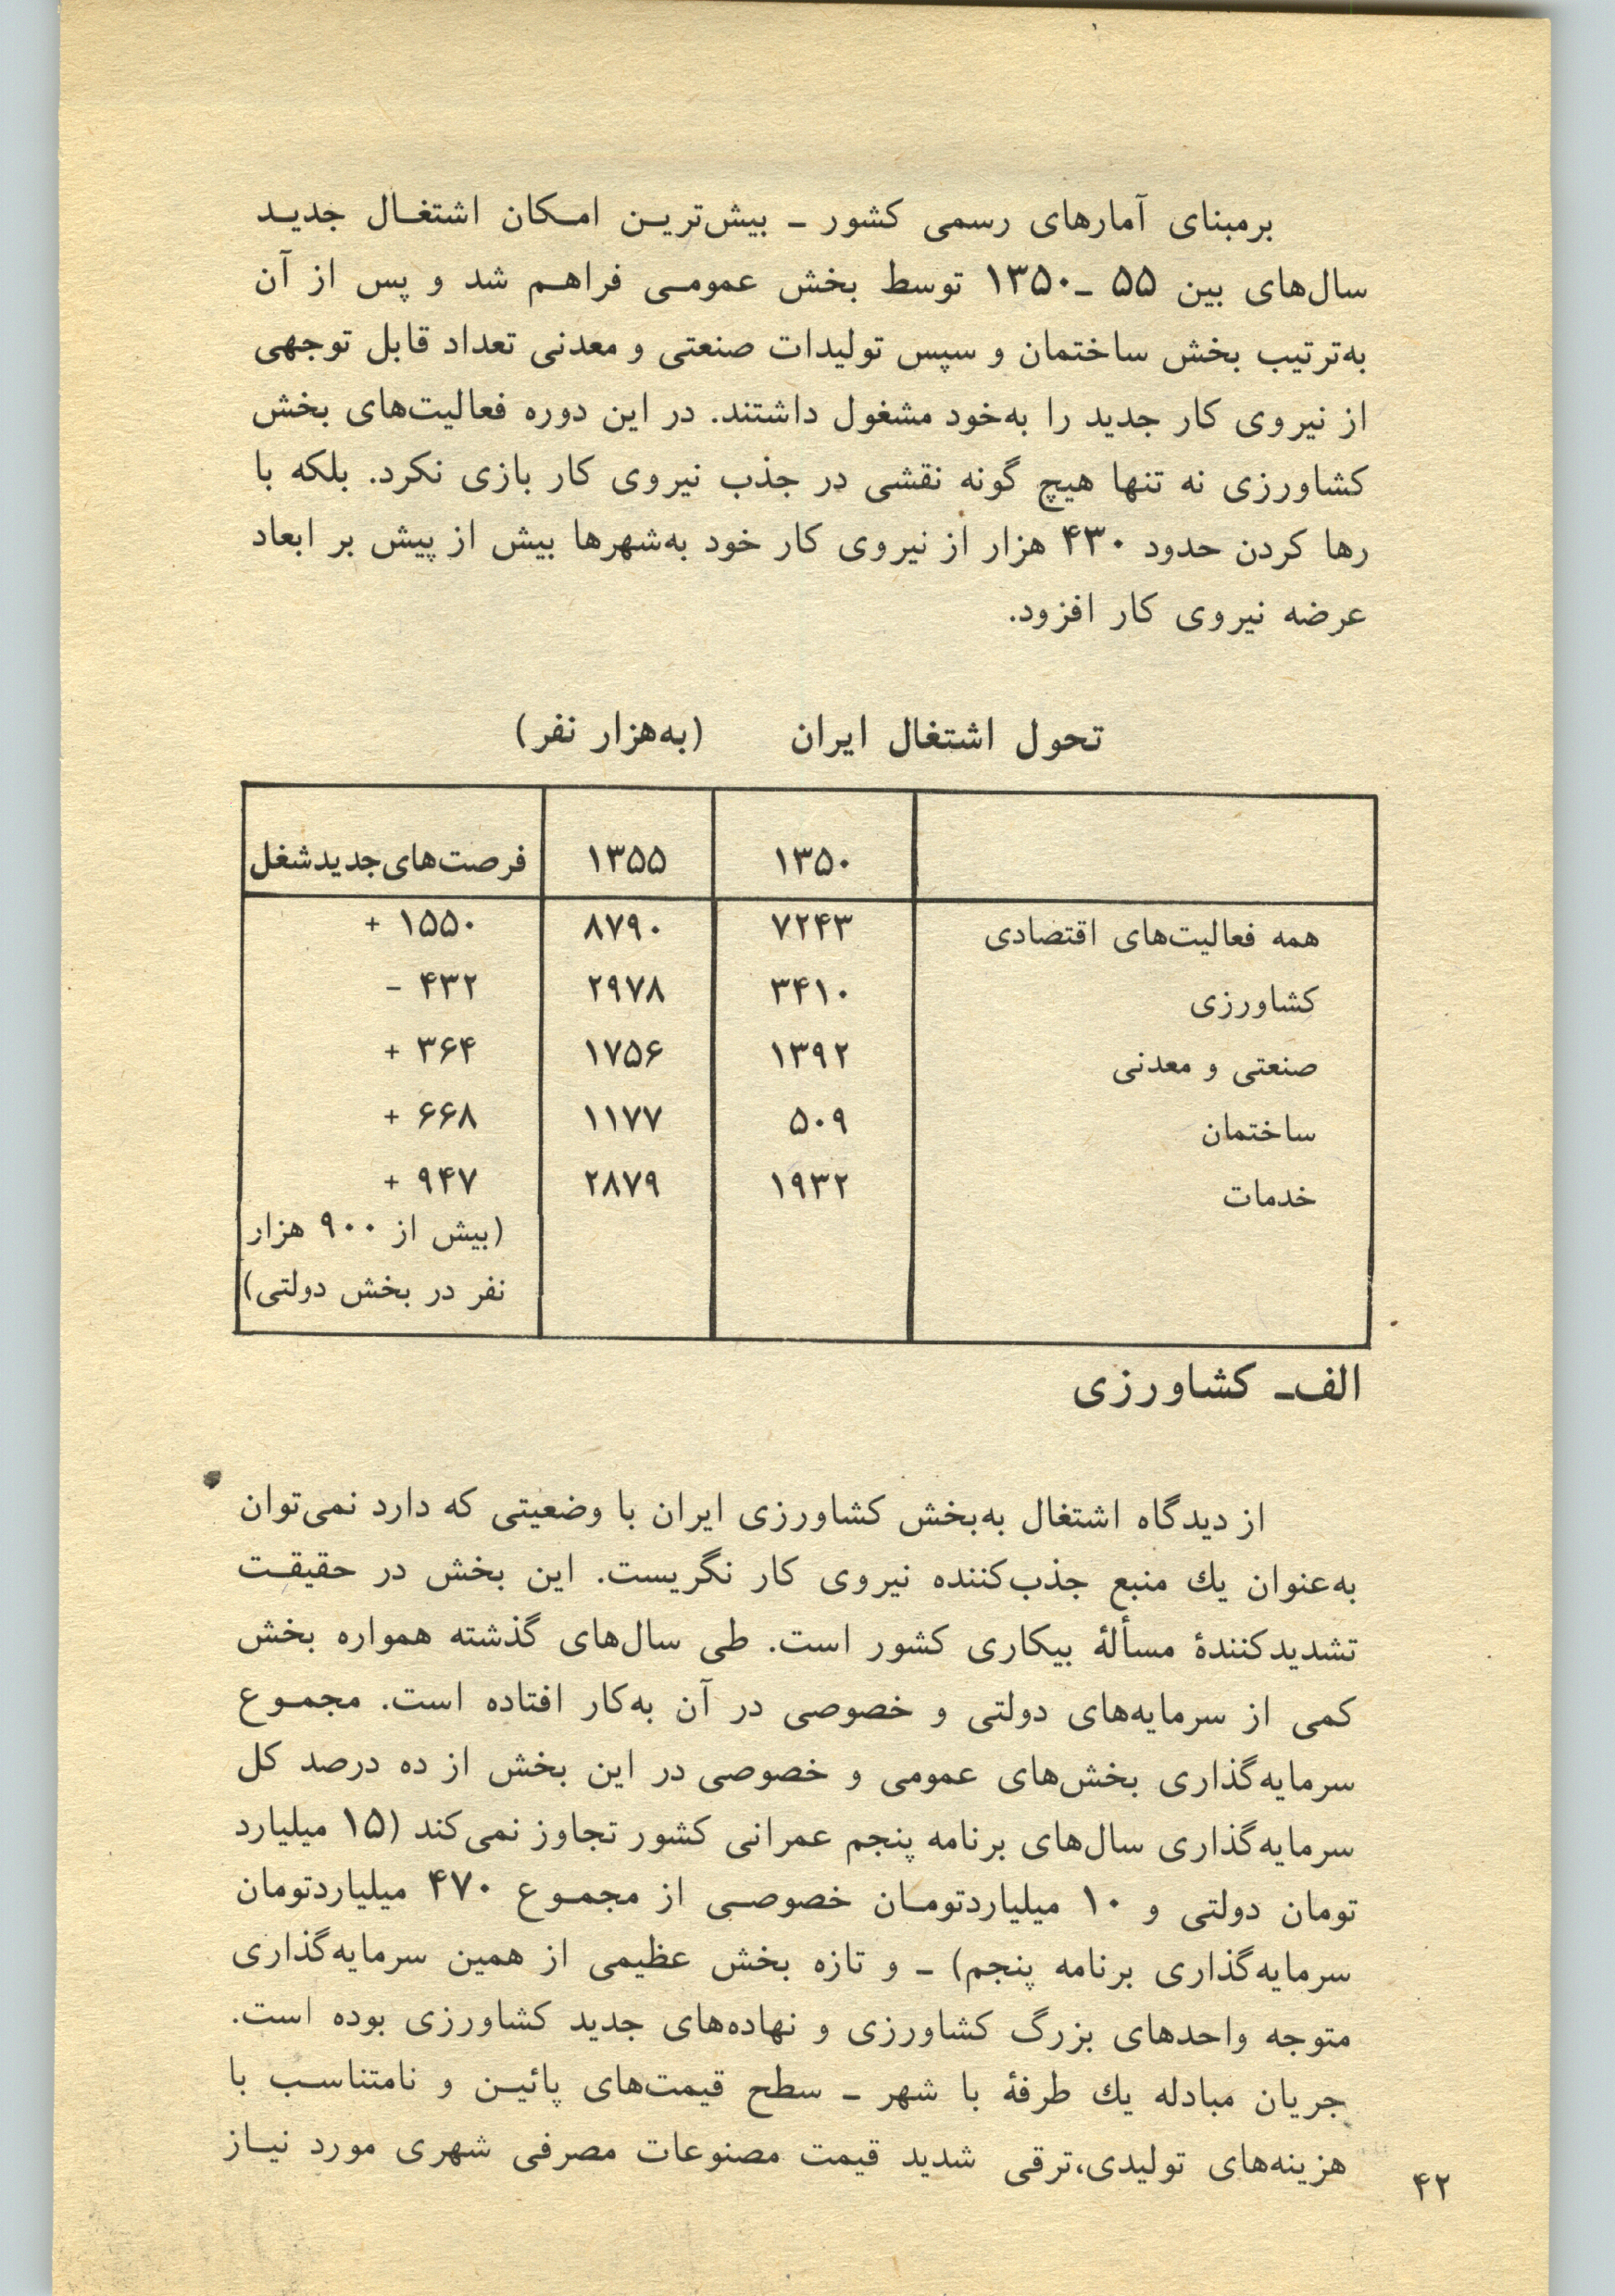 برمبنای آمارهای رسمی کشور ـ بیش‌ترین امکان اشتغال جدید
سال‌های بین ۵۵ ـ۱۳۵۰ توسط بخش عمومی فراهم شد و پس از آن
به‌ترتیب بخش ساختمان و سپس تولیدات صنعتی و معدنی تعداد قابل توجهی
از نیروی کار جدید را به‌خود مشغول داشتند. در این دوره فعالیت‌های بخش
کشاورزی نه تنها هیچ گونه نقشی در جذب نیروی کار بازی نکرد. بلکه با
رها کردن حدود ۴۳۰ هزار از نیروی کار خود به‌شهرها بیش از پیش بر ابعاد
عرضه نیروی کار افزود.
تحول اشتغال ایران (به‌هزار نفر)
۱۳۵۰ ۱۳۵۵ فرصت‌های‌جدیدشغل
همه فعالیت‌های اقتصادی ۷۲۴۳ ۸۷۹۰ ۱۵۵۰ +
کشاورزی ۳۴۱۰ ۲۹۷۸ ۴۳۲ -
صنعتی و معدنی ۱۳۹۲ ۱۷۵۶ ۳۶۴ +
ساختمان ۵۰۹ ۱۱۷۷ ۶۶۸ +
خدمات ۱۹۳۲ ۲۸۷۹ ۹۴۷ +
(بیش از ۹۰۰ هزار
نفر در بخش دولتی)
الف‌ـ کشاورزی
از دیدگاه اشتغال به‌بخش کشاورزی ایران با وضعیتی که دارد نمی‌توان
به‌عنوان یك منبع جذب‌کننده نیروی کار نگریست. این بخش در حقیقت
تشدیدکنندهٔ مسألهٔ بیکاری کشور است. طی سال‌های گذشته همواره بخش
کمی از سرمایه‌های دولتی و خصوصی در آن به‌کار افتاده است. مجموع
سرمایه‌گذاری بخش‌های عمومی و خصوصی در این بخش از ده درصد کل
سرمایه‌گذاری سال‌های برنامه پنجم عمرانی کشور تجاوز نمی‌کند (۱۵ میلیارد
تومان دولتی و ۱۰ میلیاردتومان خصوصی از مجموع ۴۷۰ میلیاردتومان
سرمایه‌گذاری برنامه پنجم) ـ و تازه بخش عظیمی از همین سرمایه‌گذاری
متوجه واحدهای بزرگ کشاورزی و نهاده‌های جدید کشاورزی بوده است.
جریان مبادله یك طرفهٔ با شهر ـ سطح قیمت‌های پائین و نامتناسب با
هزینه‌های تولیدی،ترقی شدید قیمت مصنوعات مصرفی شهری مورد نیاز
۴۲